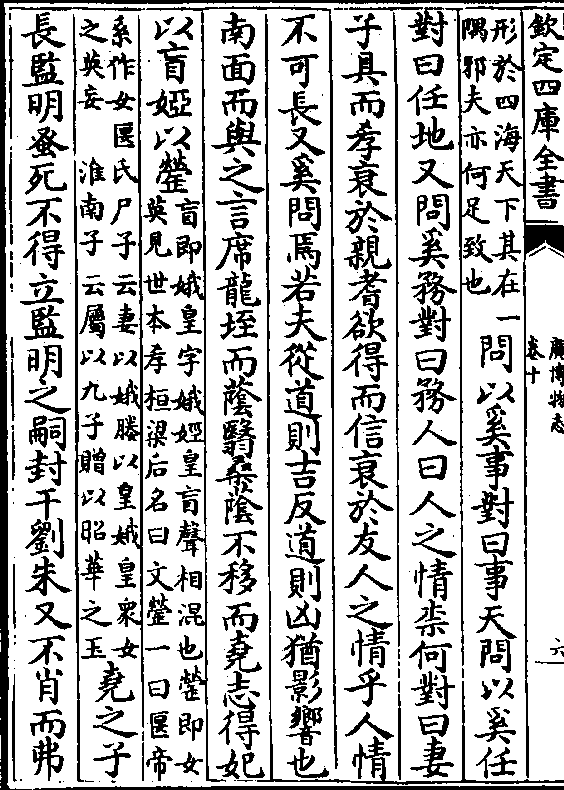 欽定四庫全書
廣博物志
卷十
六
形於四海天下其在一
隅邪夫亦何足致也
問以奚事對曰事天問以奚任
對曰任地又問奚務對曰務人曰人之情柰何對曰妻
子具而孝衰於親耆欲得而信衰於友人之情乎人情
不可長又奚問焉若夫從道則吉反道則凶猶影響也
南面而與之言席龍垤而蔭翳桑蔭不移而堯志得妃
以盲婭以䓨
盲即娥皇字娥娙皇盲聲相混也䓨即女
英見世本孝桓梁后名曰文䓨一曰匽帝
系作女匽氏尸子云妻以娥媵以皇娥皇衆女
之英妄 淮南子云屬以九子贈以昭華之玉
堯之子
長監明蚤死不得立監明之嗣封于劉朱又不肖而弗